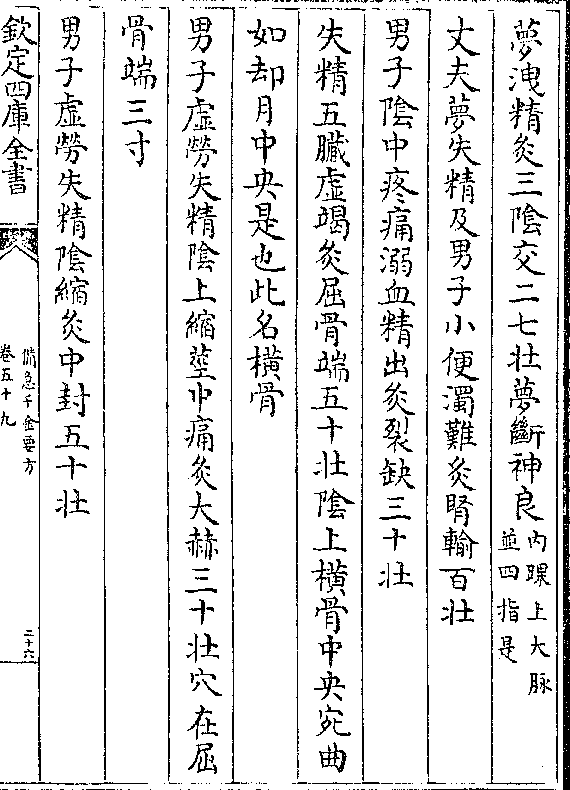 夢洩精灸三陰交二七壯夢斷神良內踝上大脉並四指是
丈夫夢失精及男子小便濁難灸腎輸百壯
男子陰中疼痛溺血精出灸裂缺三十壯
失精五臟虛竭灸屈骨端五十壯陰上橫骨中央宛曲
如却月中央是也此名橫骨
男子虛勞失精陰上縮莖中痛灸大赫三十壯穴在屈
骨端三寸
男子虛勞失精陰縮灸中封五十壯
欽定四庫全書
備急千金要方
卷五十九
二十六